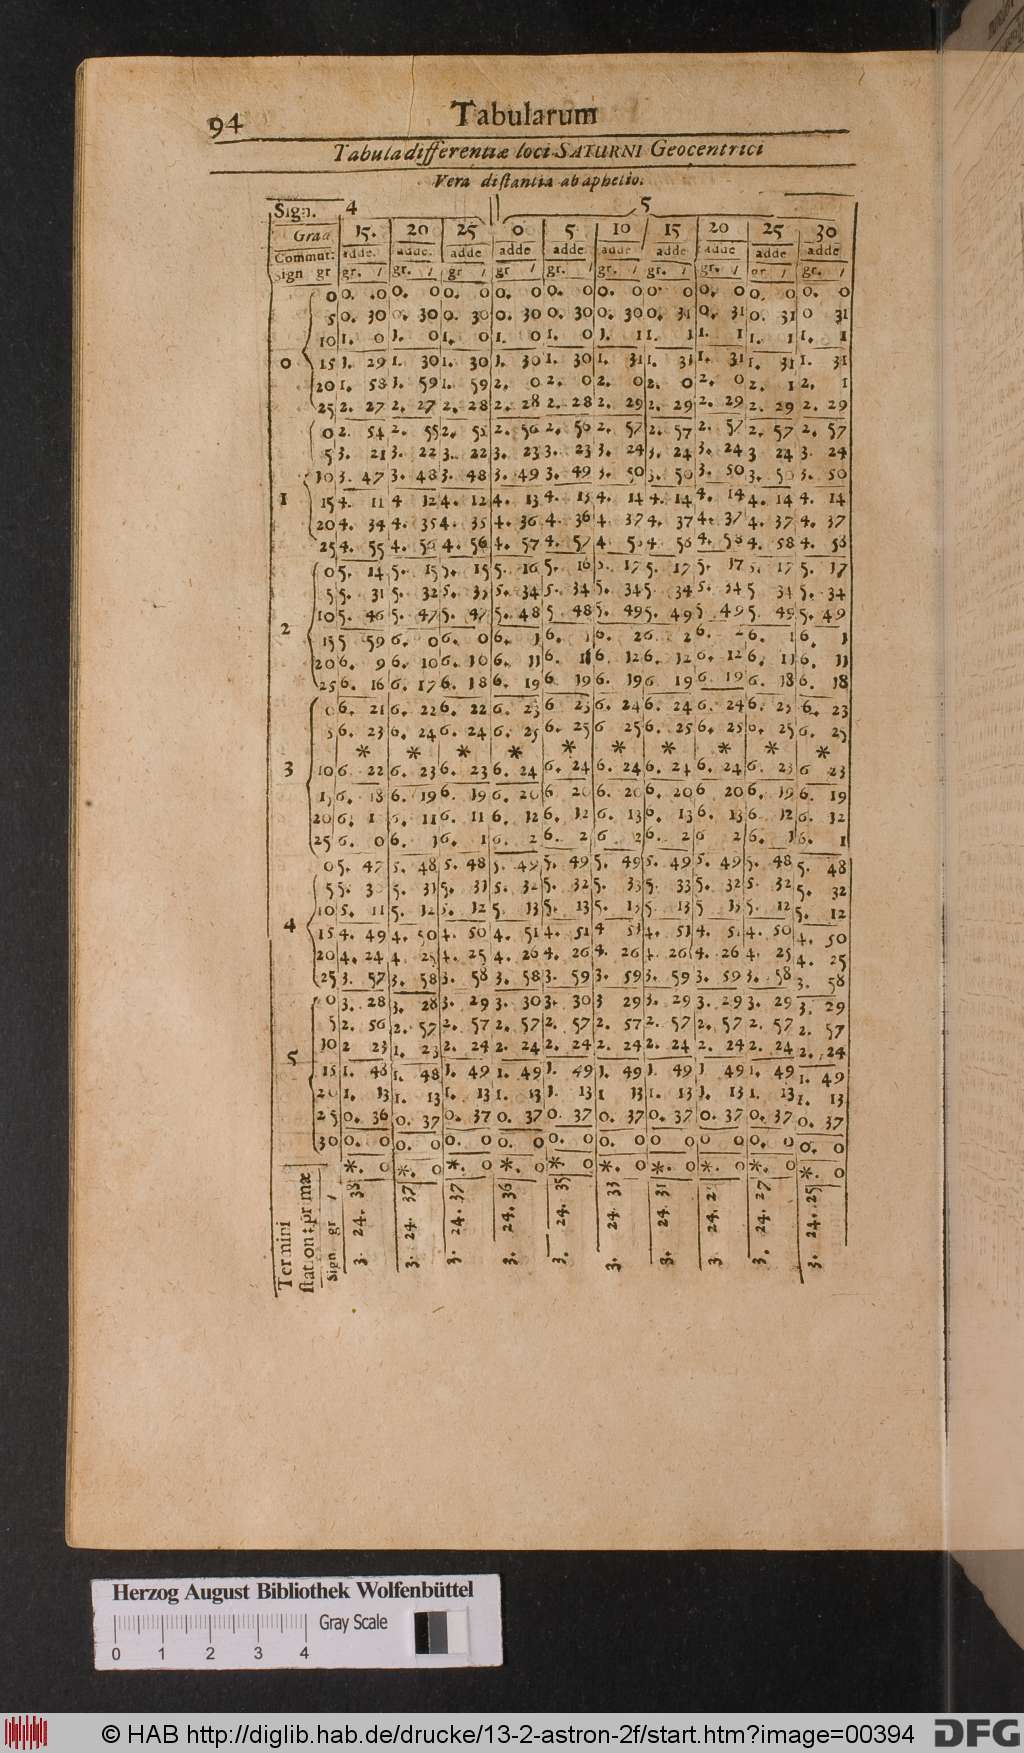 94 Tabularum
Tabula differentiæ loci SATURNI Geocentrici
Vera distantia ab aphelio.
Sign. 4 5
Grad 15. 20 25 0 5 10 15 20 25 30
Commut: adde. adde. adde adde adde adde adde adde adde adde
Sign gr gr. / gr. / gr / gr / gr. / gr. / gr. / gr. / gr. / gr. /
0 0. 0 0. 0 0. 0 0. 0 0. 0 0. 0 0. 0 0. 0 0. 0 0. 0
5 0. 30 0. 30 0. 30 0. 30 0. 30 0. 30 0. 31 0. 31 0. 31 0 31
10 1. 0 1. 0 1. 0 1. 0 1. 0 1. 1 1. 1 1. 1 1. 1 1. 1
0 15 1. 29 1. 30 1. 30 1. 30 1. 30 1. 31 1. 31 1. 31 1. 31 1. 31
20 1. 58 1. 59 1. 59 2. 0 2. 0 2. 0 2. 0 2. 0 2. 1 2. 1
25 2. 27 2. 27 2. 28 2. 28 2. 28 2. 29 2. 29 2. 29 2. 29 2. 29
0 2. 54 2. 55 2. 55 2. 56 2. 56 2. 57 2. 57 2. 57 2. 57 2. 57
5 3. 21 3. 22 3. 22 3. 23 3. 23 3. 24 3. 24 3. 24 3 24 3. 24
10 3. 47 3. 48 3. 48 3. 49 3. 49 3. 50 3. 50 3. 50 3. 50 3. 50
1 15 4. 11 4 12 4. 12 4. 13 4. 13 4. 14 4. 14 4. 14 4. 14 4. 14
20 4. 34 4. 35 4. 35 4. 36 4. 36 4. 37 4. 37 4. 37 4. 37 4. 37
25 4. 55 4. 56 4. 56 4. 57 4. 57 4 58 4. 58 4. 58 4. 58 4. 58
0 5. 14 5. 15 5. 15 5. 16 5. 16 5. 17 5. 17 5. 17 5. 17 5. 17
5 5. 31 5. 32 5. 33 5. 34 5. 34 5. 34 5. 34 5. 34 5 34 5. 34
10 5. 46 5. 47 5. 47 5. 48 5 48 5. 49 5. 49 5 49 5. 49 5. 49
2 15 5 59 6. 0 6. 0 6. 1 6. 1 6. 2 6. 2 6. 2 6. 1 6. 1
20 6. 9 6. 10 6. 10 6. 11 6. 11 6. 12 6. 12 6. 12 6. 11 6. 11
25 6. 16 6. 17 6. 18 6. 19 6. 19 6. 19 6 19 6 19 6. 18 6. 18
0 6. 21 6. 22 6. 22 6. 23 6 23 6. 24 6. 24 6. 24 6. 23 6. 23
5 6. 23 6. 24 6. 24 6. 25 6. 25 6 25 6. 25 6. 25 6. 25 6. 25
* * * * * * * * * *
3 10 6. 22 6. 23 6. 23 6. 24 6. 24 6. 24 6. 24 6. 24 6. 23 6 23
15 6. 18 6. 19 6. 19 6. 20 6. 20 6. 20 6. 20 6 20 6. 19 6. 19
20 6. 1 6. 11 6. 11 6. 12 6. 12 6. 13 6. 13 6. 13 6. 12 6. 12
25 6. 0 6. 1 6. 1 6. 2 6. 2 6 2 6. 2 6 2 6. 1 6. 1
0 5. 47 5. 48 5. 48 5. 49 5. 49 5. 49 5. 49 5. 49 5. 48 5. 48
5 5. 30 5. 31 5. 31 5. 32 5. 32 5. 33 5. 33 5. 32 5. 32 5. 32
10 5. 11 5. 12 5. 12 5. 13 5. 13 5. 13 5. 13 5 13 5. 12 5. 12
4 15 4. 49 4. 50 4. 50 4. 51 4. 51 4 51 4. 51 4. 51 4. 50 4. 50
20 4. 24 4. 25 4. 25 4. 26 4. 26 4. 26 4. 26 4. 26 4. 25 4. 25
25 3. 57 3. 58 3. 58 3. 58 3. 59 3. 59 3. 59 3. 59 3. 58 3. 58
0 3. 28 3. 28 3. 29 3. 30 3. 30 3 29 3. 29 3. 29 3. 29 3. 29
5 2. 56 2. 57 2. 57 2. 57 2. 57 2. 57 2. 57 2. 57 2. 57 2. 57
10 2 23 1. 23 2. 24 2. 24 2. 24 2. 24 2. 24 2. 24 2. 24 2. 24
5 15 1. 48 1. 48 1. 49 1. 49 1. 49 1. 49 1. 49 1 49 1. 49 1. 49
20 1. 13 1. 13 1. 13 1. 13 1. 13 1 13 1. 13 1. 13 1. 13 1. 13
25 0. 36 0. 37 0. 37 0. 37 0. 37 0. 37 0. 37 0. 37 0. 37 0. 37
30 0. 0 0. 0 0. 0 0. 0 0. 0 0. 0 0 0 0 0 0. 0 0. 0
*. 0 *. 0 *. 0 *. 0 *. 0 *. 0 *. 0 *. 0 *. 0 *. 0
Termini
station: primæ
Sign gr /
3. 24. 38
3. 24. 37
3. 24. 37
3. 24. 36
3. 24. 35
3. 24. 33
3. 24. 31
3. 24. 2
3. 24. 27
3. 24. 25
Herzog August Bibliothek Wolfenbüttel
Gray Scale
0 1 2 3 4
© HAB http://diglib.hab.de/drucke/13-2-astron-2f/start.htm?image=00394 DFG